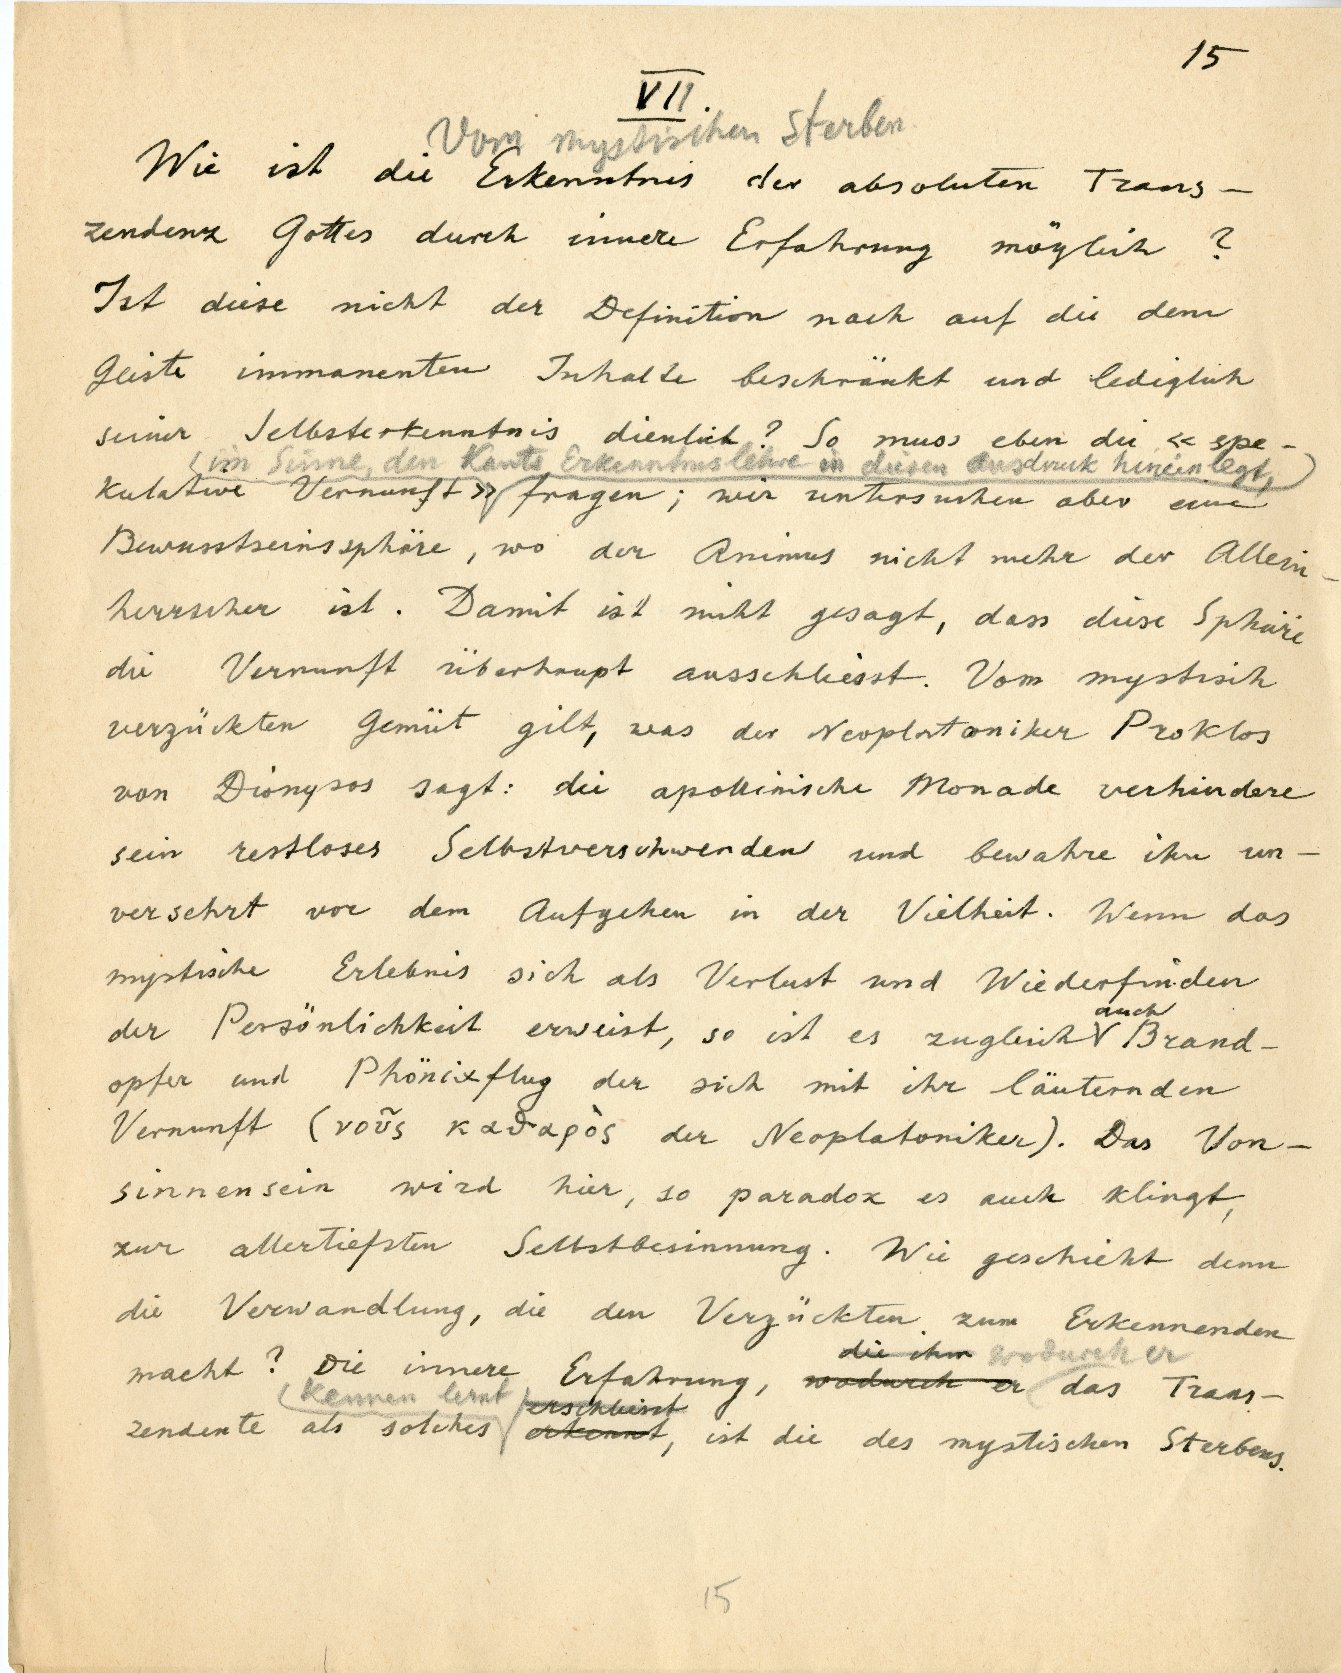 15
VII.
Vom mystischen Sterben
Wie ist die Erkenntnis der absoluten Trans-
zendenz Gottes durch innere Erfahrung möglich ?
Ist diese nicht der Definition nach auf die dem
Geiste immanenten Inhalte beschränkt und lediglich
seiner Selbsterkenntnis dienlich ? So muss eben die « spe-
(im Sinne, den Kants Erkenntnislehre in diesen Ausdruck hineinlegt,)
kulative Vernunft » fragen ; wir untersuchen aber eine
Bewusstseinssphäre, wo der Animus nicht mehr der Allein-
herrscher ist. Damit ist nicht gesagt, dass diese Sphäre
die Vernunft überhaupt ausschliesst. Vom mystisch
verzückten Gemüt gilt, was der Neoplatoniker Proklos
von Dionysos sagt: die apollinische Monade verhindere
sein restloses Selbstverschwenden und bewahre ihn un-
versehrt vor dem Aufgehen in der Vielheit. Wenn das
mystische Erlebnis sich als Verlust und Wiederfinden
auch
der Persönlichkeit erweist, so ist es zugleich Brand-
opfer und Phönixflug der sich mit ihr läuternden
Vernunft (νοῦς καθαρὸς der Neoplatoniker). Das Von-
sinnensein wird hier, so paradox es auch klingt,
zur allertiefsten Selbstbesinnung. Wie geschieht denn
die Verwandlung, die den Verzückten zum Erkennenden
die ihm wodurch er
macht ? Die innere Erfahrung, wodurch er das Trans-
(kennen lernt) erschliesst
zendente als solches erkennt, ist die des mystischen Sterbens.
15